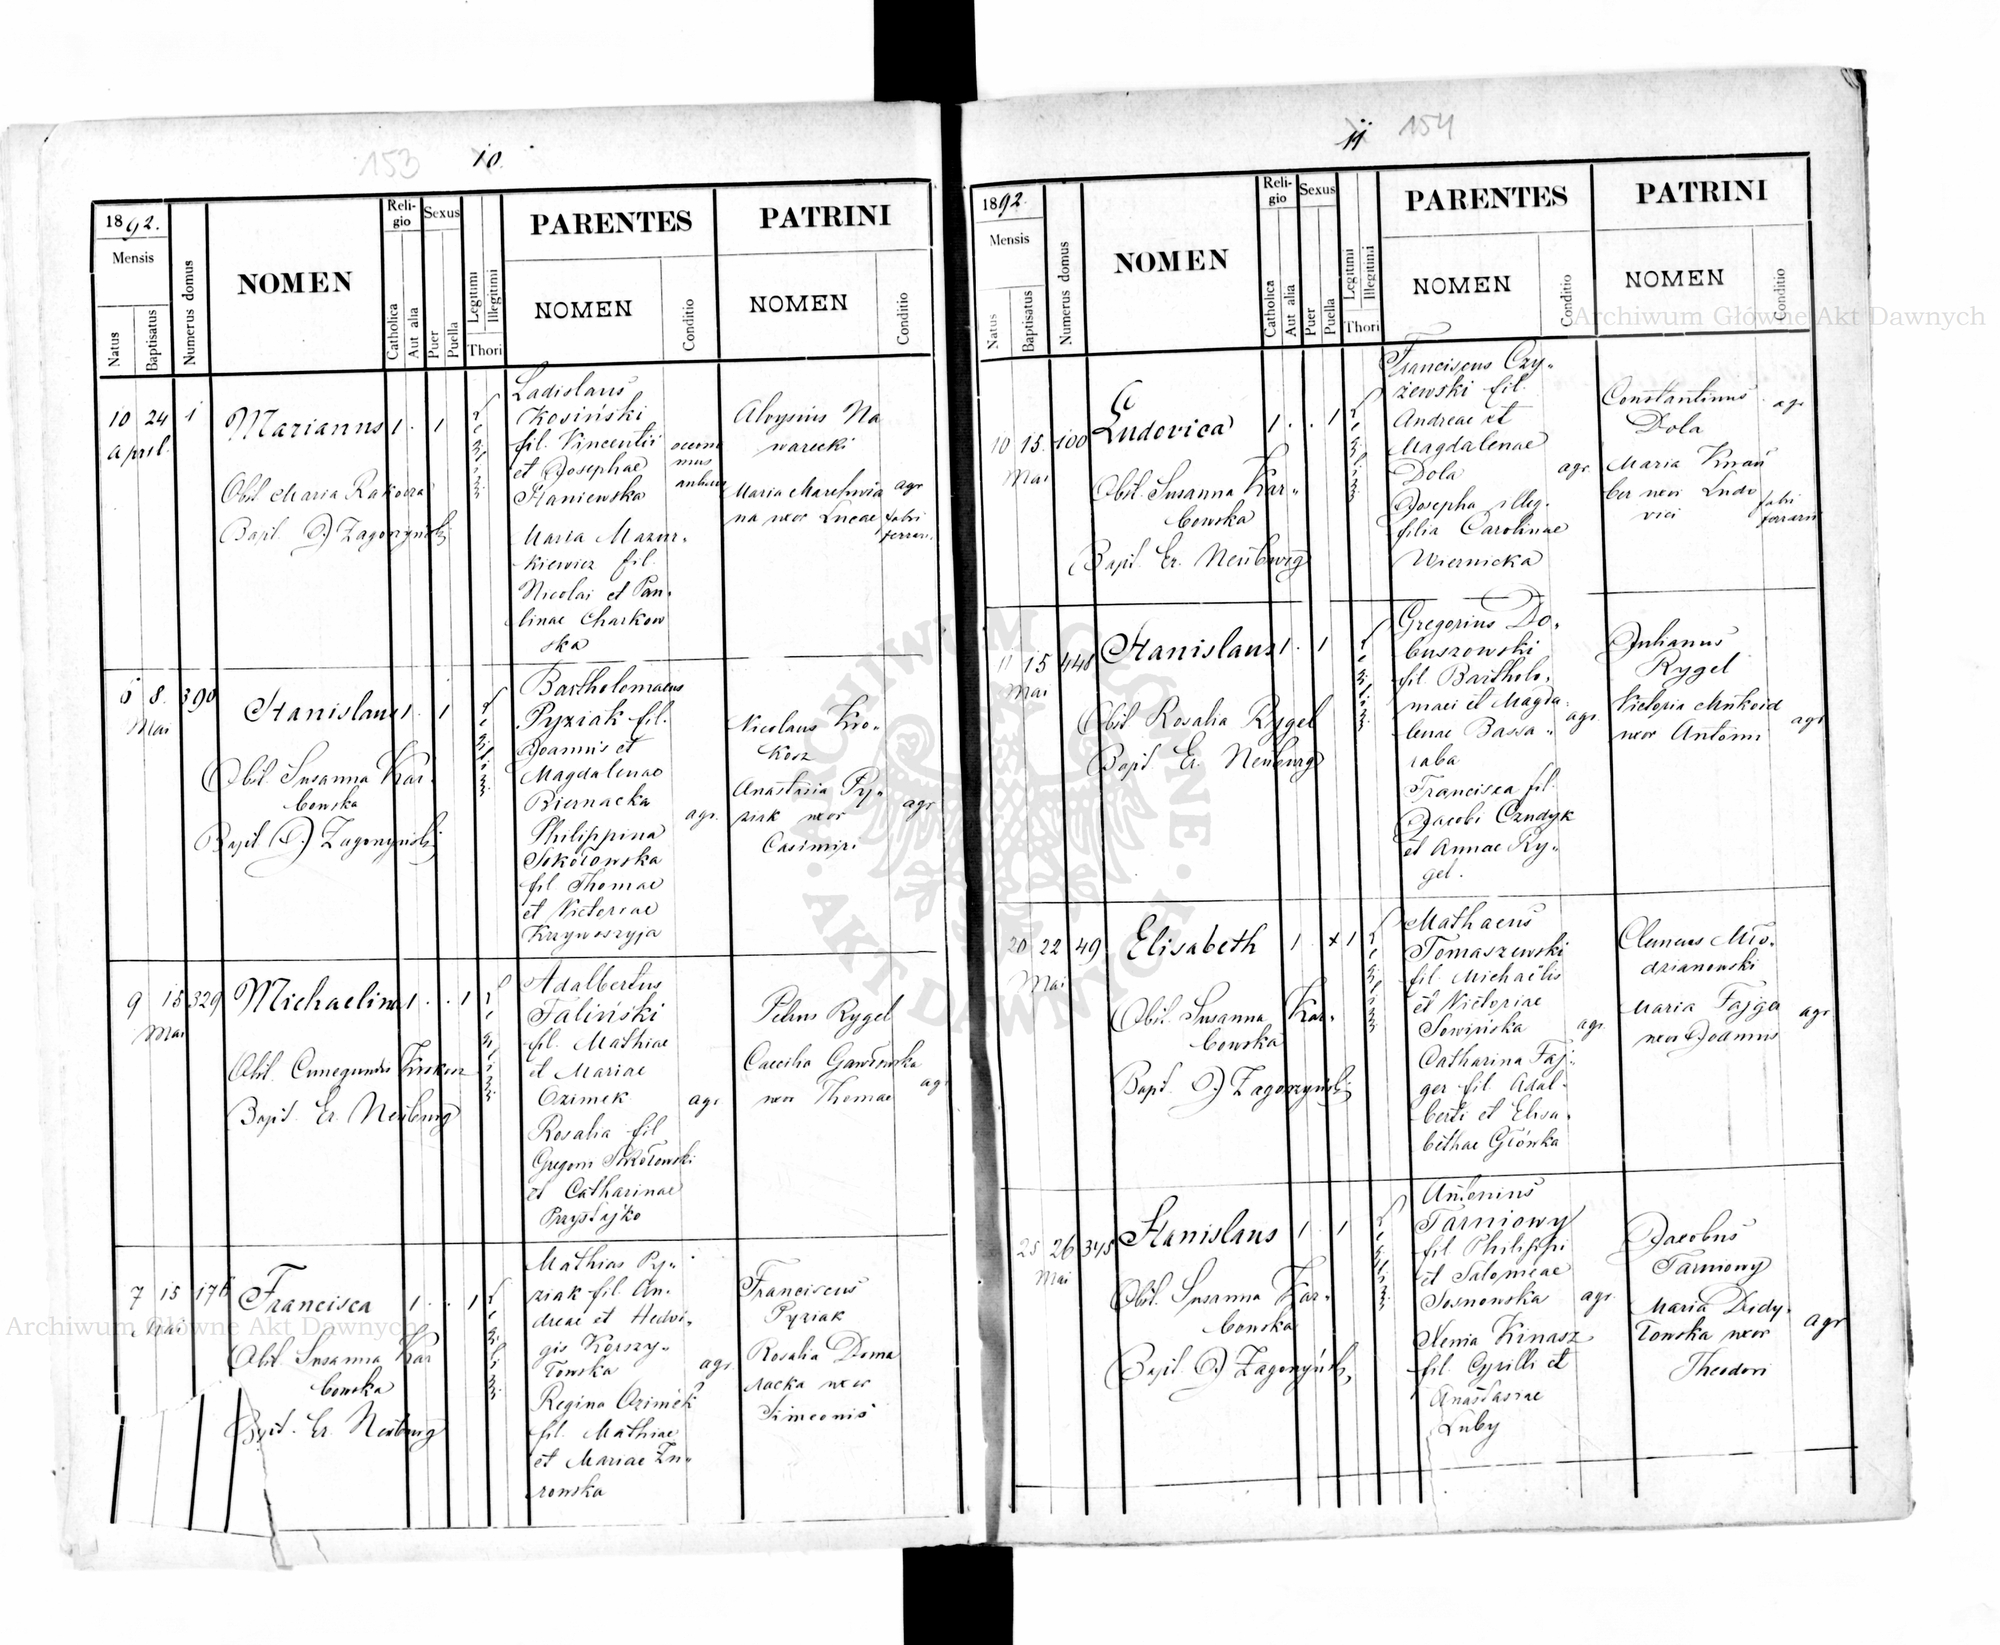 153
10.
1892.
Mensis
Natus
Baptisatus
Numerus domus
NOMEN
Reli-
gio
Catholica
Aut alia
Sexus
Puer
Puella
Legitimi
Illegitimi
Thori
PARENTES
NOMEN
Conditio
PATRINI
NOMEN
Conditio
10 24 1
April.
Marianus 1. 1
Obst Maria Rakocza
Bapt. Zagorzyński
Ladislaus
Kosiński
fil. Vincentii
et Josephae
Staniewska
Maria Mazur-
kiewicz fil.
Nicolai et Pau-
linae Charkow
ska
Aloysius Na
warecki
na uxor Lucae
agr
fabri
ferrari.
8. 390
Mai
Stanislaus 1. 1
Obst. Susanna Kar-
bowska
Bapt Zagorzyński
Bartholomaeus
Pyziak fil.
Joannis et
Magdalenae
Biernacka
Philippina
Sokołowska
fil Thomae
et Victoriae
Krzywoszyja
agr.
Nicolaus Kro-
kosz
Anastasia Py-
ziak uxor
Casimiri
agr
9 15 329
Mai
Michaelina 1. . 1
Obst. Cunegunda Krokosz
Bapt. Er. Neuburg
Adalbertus
Taliński
fil. Mathiae
et Mariae
Ozimek
Rosalia fil
Gregorii Sokołowski
et Catharinae
Przystajko
agr
Petrus Rygel
Caecilia Gawłowska
uxor Thomae
agr
7 15 176
Mai
Francisca 1. . 1
Obst. Susanna Kar
bowska
Bapt. Er. Neuburg
Mathias Py-
ziak fil. An-
dreae et Hedwi-
gis Korszy-
łowska
Regina Ozimek
fil. Mathiae
et Mariae Żu-
rowska
agr.
Franciscus
Pyziak
Rosalia Doma
racka uxor
Simeonis
11
154
1892.
Mensis
Natus
Baptisatus
Numerus domus
NOMEN
Reli-
gio
Catholica
Aut alia
Sexus
Puer
Puella
Legitimi
Illegitimi
Thori
PARENTES
NOMEN
Conditio
PATRINI
NOMEN
Conditio
10 15. 100
Mai
Ludovica 1. . 1
Obst. Susanna Kar-
bowska
Bapt. Er. Neuburg
Franciscus Czy-
żewski fil.
Andreae et
Magdalenae
Dola
Josepha illeg.
filia Carolinae
Wiernicka
agr.
Constantinus
Dola
Maria Knau
ber uxor Ludo
vici
agr
fabri
ferrarii
11 15 448
Mai
Stanislaus 1. 1
Obst Rosalia Rygel
Bapt. Er. Neuburg
Gregorius Do-
buszowski
fil Bartholo-
maei et Magda-
lenae Bassa-
raba
Francisca fil.
Jacobi Czudyk
et Annae Ry-
gel.
agr.
Julianus
Rygel
uxor Antoni
agr
20 22 49
Mai
Elisabeth 1. x 1
Obst. Susanna Kar-
bowska
Bapt. Zagorzyński
Mathaeus
Tomaszewski
fil. Michaëlis
et Victoriae
Sowińska
Catharina Faj-
ger fil Adal-
berti et Elisa-
bethae Główka
agr.
Clemens Mło-
dzianowski
Maria Fajga
uxor Joannis
agr
25 26 345
Mai
Stanislaus 1. 1
Obst. Susanna Kar-
bowska
Bapt. Zagorzyński
Antonius
Tarniowy
fil Philippi
et Salomeae
Sosnowska
Xenia Kinasz
fil. Cyrilli et
Anastasiae
Luby
agr.
Jacobus
Tarniowy
Maria Dudy-
łowska uxor
Theodori
agr
Archiwum Główne Akt Dawnych
Archiwum Główne Akt Dawnych
ARCHIWUM GŁÓWNE
AKT DAWNYCH